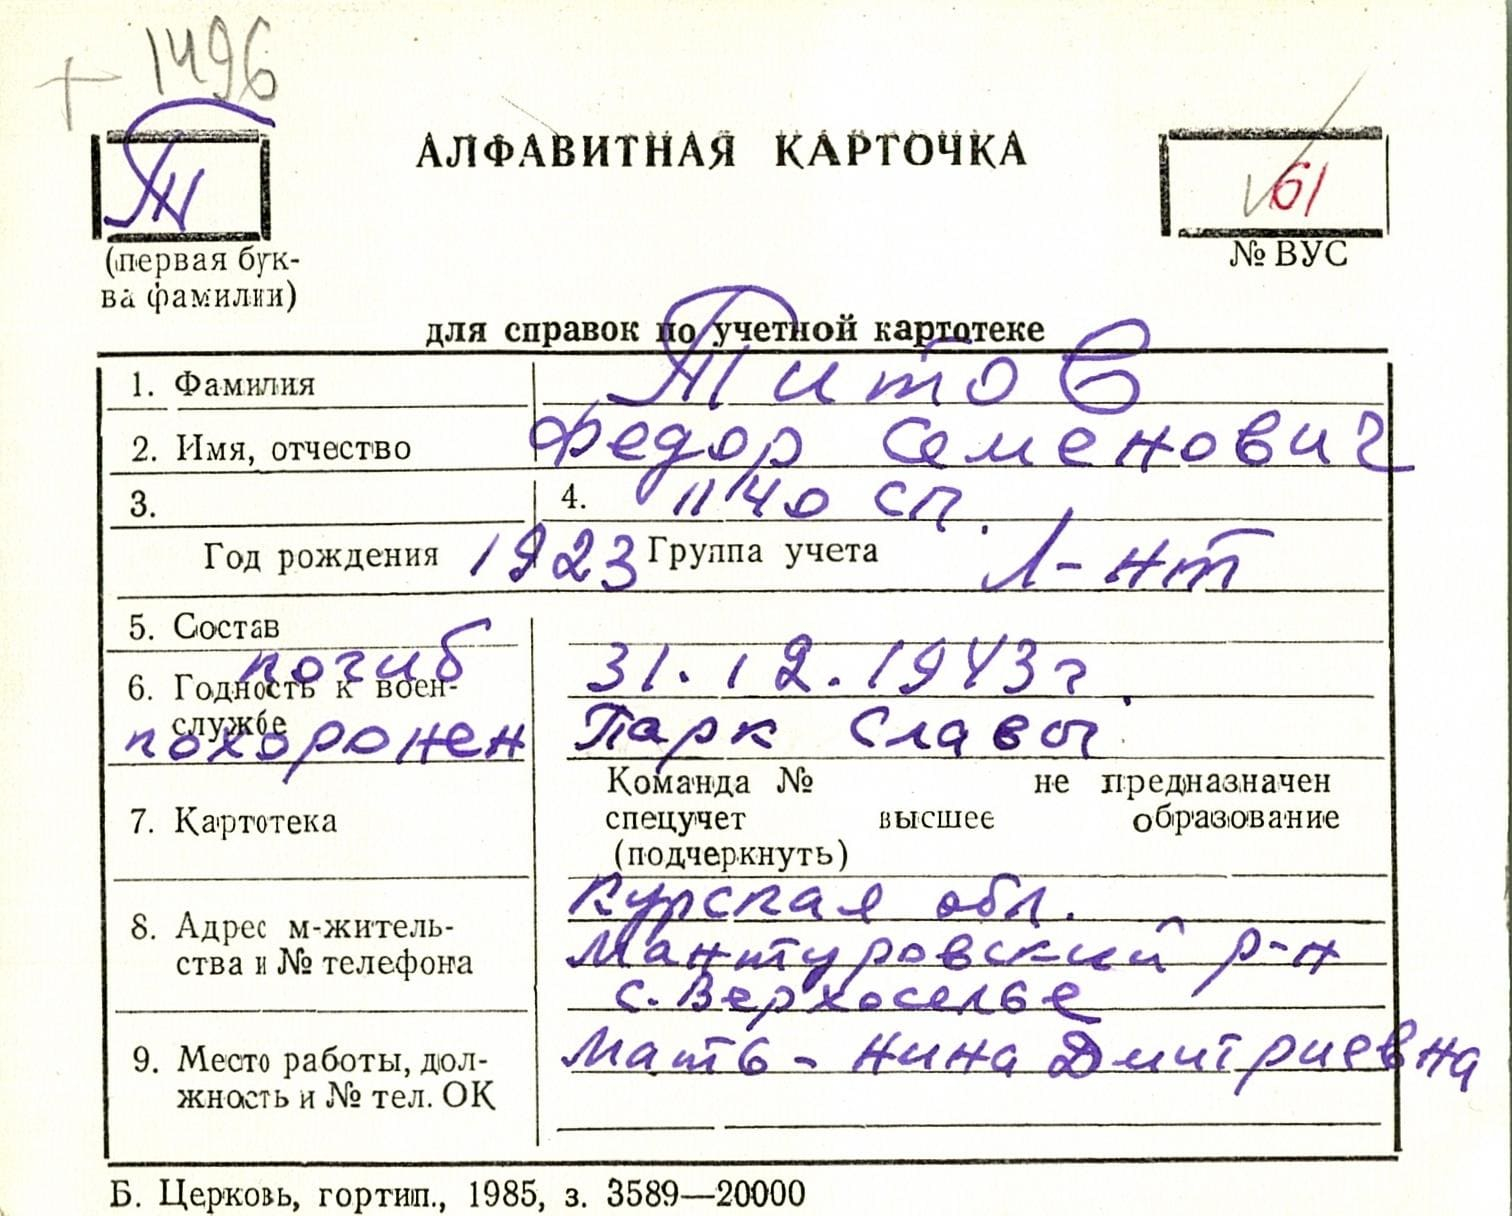 + 1496
Ти
АЛФАВИТНАЯ КАРТОЧКА
61
(первая бук-
ва фамилии)
№ ВУС
для справок по учетной картотеке
1. Фамилия Титов
2. Имя, отчество Федор Семенович
3. 4. 1140 сп.
Год рождения 1923 Группа учета Л-нт
5. Состав
погиб 31.12.1943 г.
6. Годность к воен-
службе
похоронен Парк Славы
Команда № не предназначен
7. Картотека спецучет высшее образование
(подчеркнуть)
Курская обл.
8. Адрес м-житель- Мантуровский р-н
ства и № телефона с. Верхоселье
9. Место работы, дол- Мать - Нина Дмитриевна
жность и № тел. ОК
Б. Церковь, гортип., 1985, з. 3589—20000